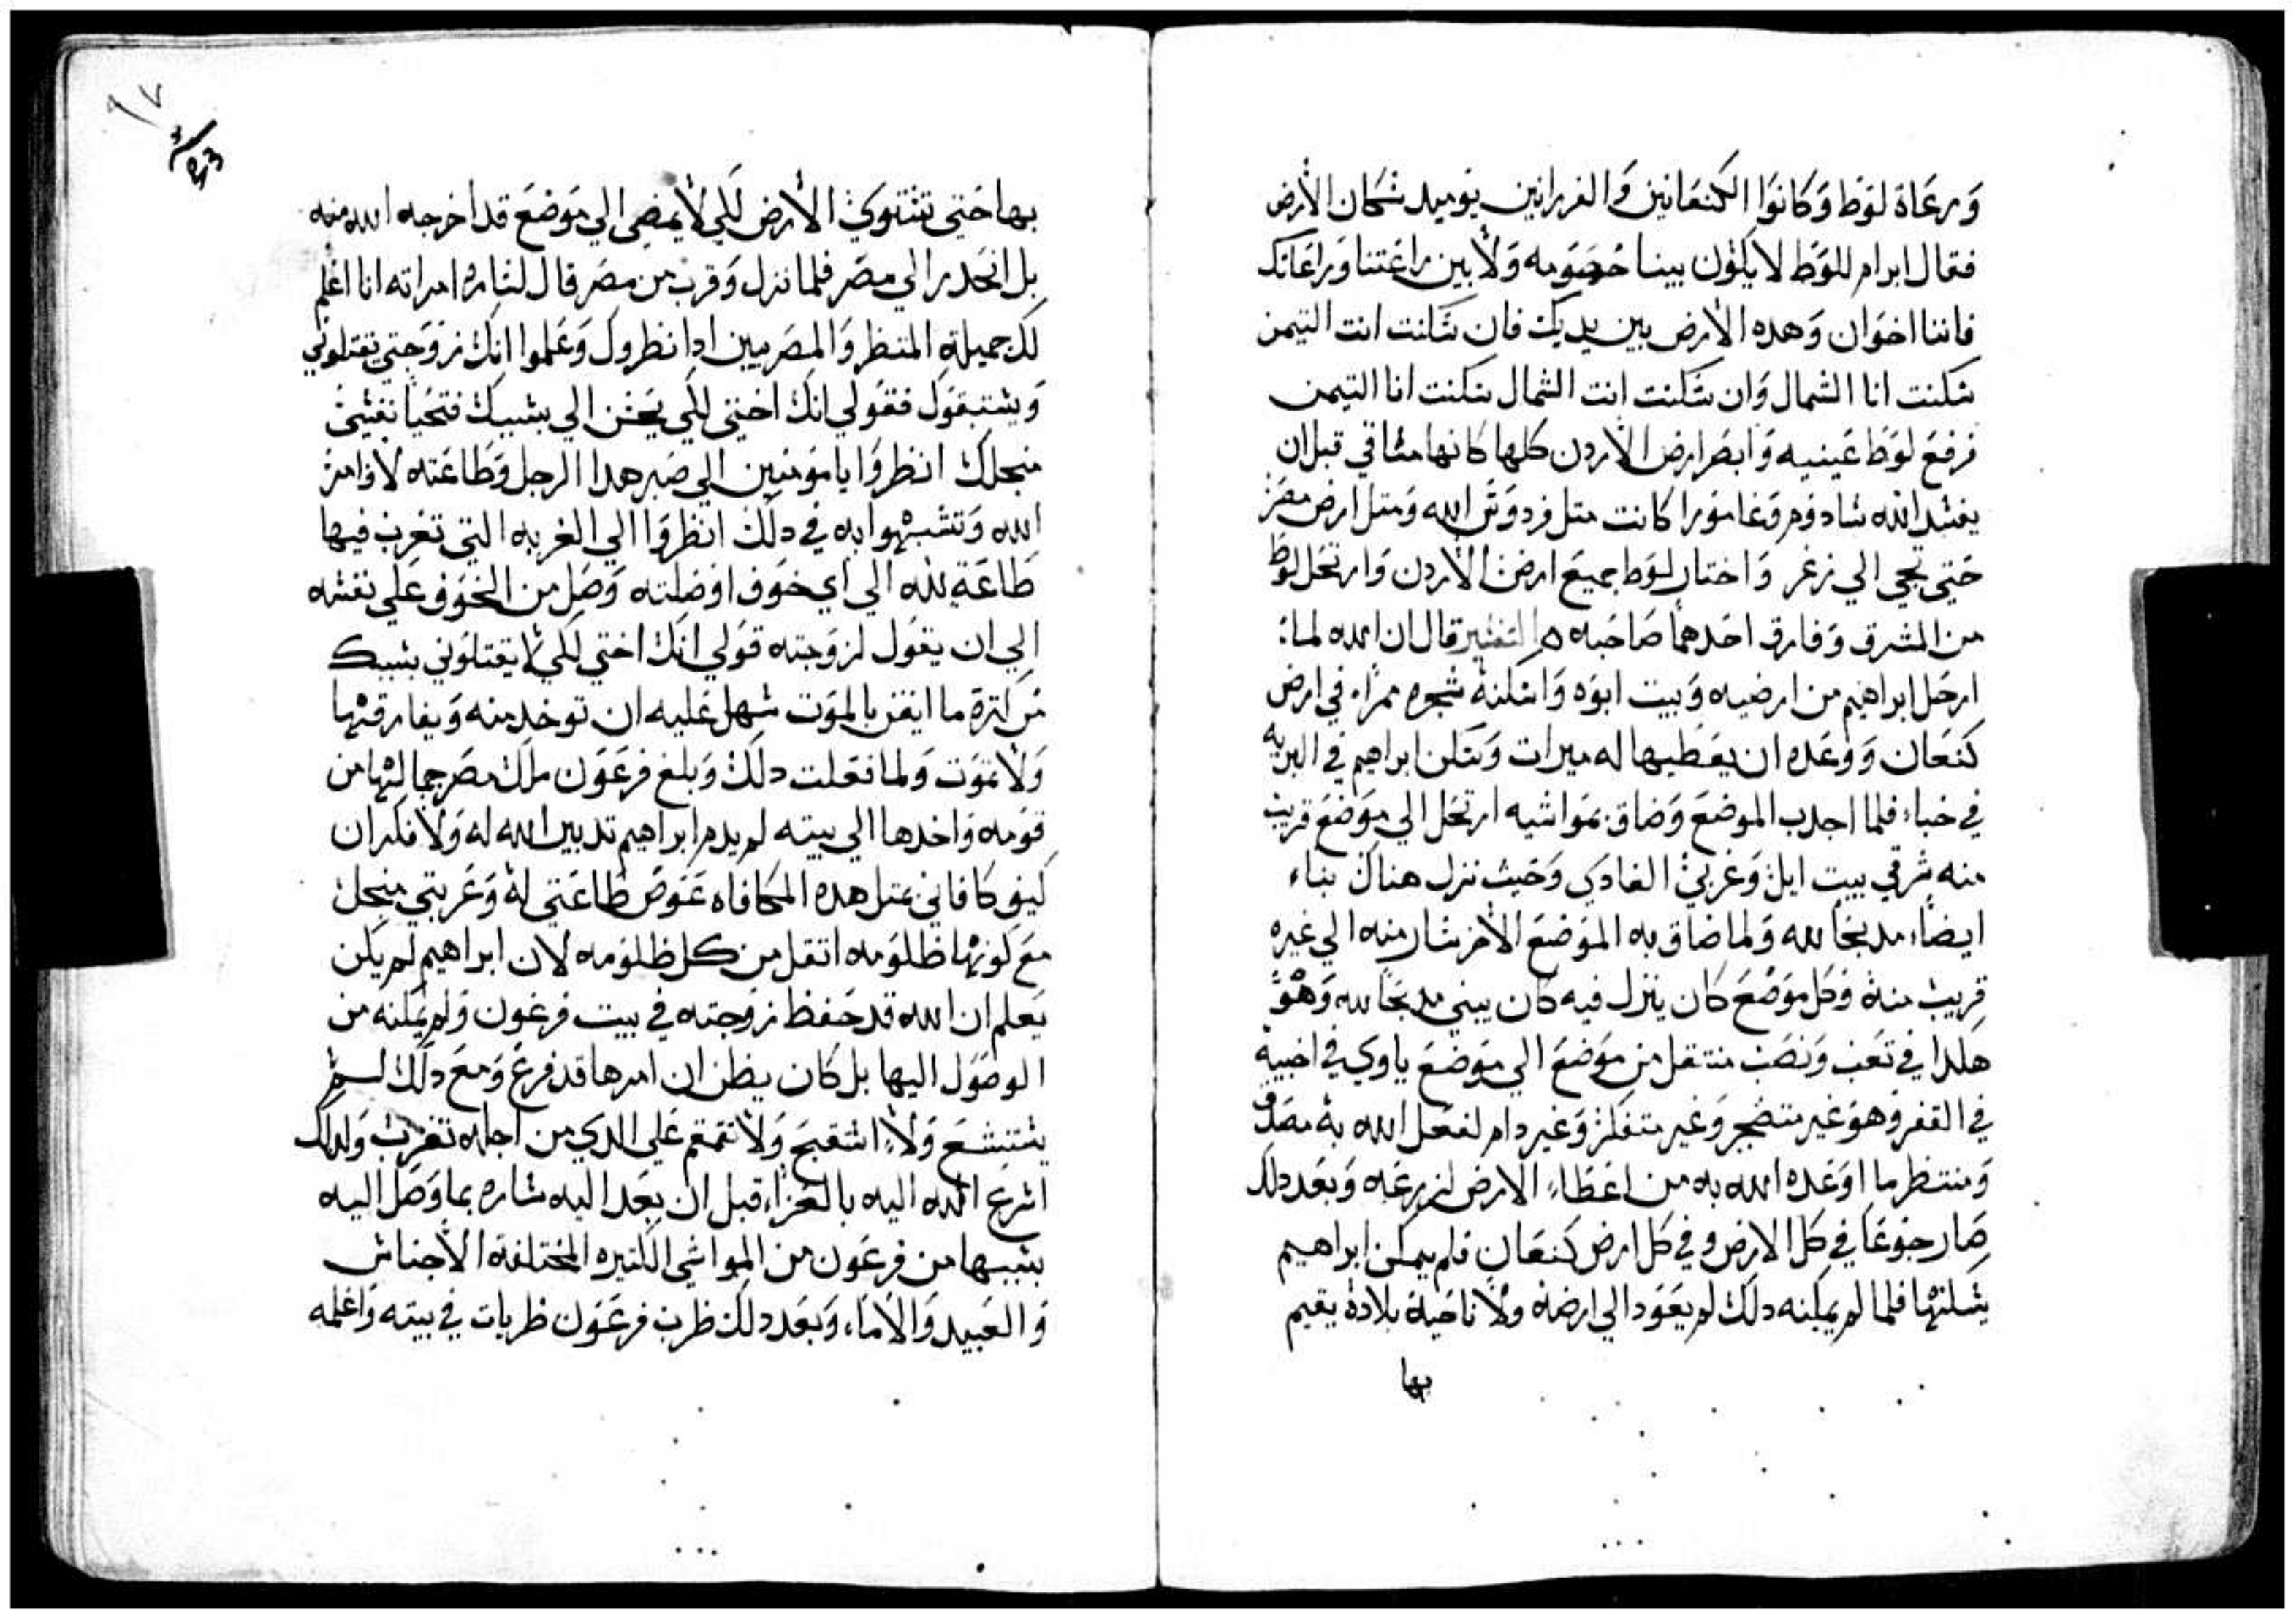 ورعاة لوط وكانوا الكنعانين والفرزانين يوميد سكان الارض
فقال ابرام للوط لا يكون بيننا خصومه ولا بين راعتنا وراعاتك
فاننا اخوان وهده الارض بين يديك فان سكنت انت التيمن
سكنت انا الشمال وان سكنت انت الشمال سكنت انا التيمن
فرفع لوط عينيه وابصر ارض الاردن كلها كانها مساقي قبل ان
يفسد الله سادوم وغامورا كانت متل فردوس الله ومتل ارض مصر
حتي تجي الي زغر واختار لوط جميع ارض الاردن وارتحل لوط
من المشرق وفارق احدهما صاحبه ه التفسير قال ان الله لما
ارحل ابراهيم من ارضيه وبيت ابوه واسكنه شجره ممراء في ارض
كنعان ووعده ان يعطيها له ميرات وسكن ابراهيم في البريه
في خباء فلما اجدب الموضع وضاق بمواشيه ارتحل الي موضع قريب
منه شرقي بيت ايل وغربي الغادي وحيث نزل هناك بناء
ايضاء مدبحا لله ولما ضاق به الموضع الاخر سار منه الي غيره
قريب منه وكل موضع كان ينزل فيه كان يبني مدبحا لله وهو
هكدا في تعب ونصب منتقل من موضع الي موضع ياوي في اخبيه
في القفر وهو غير متضجر وغير متفكر وغير دام لفعل الله به مصدق
ومنتظر ما اوعده الله به من اعطاء الارض لزرعه وبعد دلك
صار جوعا في كل الارض وفي كل ارض كنعان فلم يمكن ابراهيم
يسكنها فلما لم يمكنه دلك لم يعود الي ارضه ولا ناحية بلاده يقيم
بها
٩٧
بها حتي تستوي الارض لكي لا يمضي الي موضع قد اخرجه الله منه
بل انحدر الي مصر فلما نزل وقرب من مصر قال لساره امراته انا اعلم
لك جميلة المنظر والمصريين ادا نظروك وعلموا انك زوجتي يقتلوني
ويستبقوك فقولي انك اختي لكي يحسن الي بسببك فتحيا نفسي
منجلك انظروا يا مومنين الي صبر هدا الرجل وطاعته لاوامر
الله وتشبهوا به في دلك انظروا الي الغربه التي تغرب فيها
طاعة لله الي اي خوف اوصلته وصل من الخوف علي نفسه
الي ان يقول لزوجته قولي انك اختي لكي لا يقتلوني بسببك
من كترة ما ايقن بالموت سهل عليه ان توخد منه ويفارقها
ولا يموت ولما فعلت دلك وبلغ فرعون ملك مصر جمالها من
قومه واخدها الي بيته لم يدم ابراهيم تدبير الله له ولا فكر ان
كيف كافاني بمتل هده المكافاه عوض طاعتي له وغربتي منجله
مع كونها ظلومه اتقل من كل ظلومه لان ابراهيم لم يكن
يعلم ان الله قد حفظ زوجته في بيت فرعون ولم يمكنه من
الوصول اليها بل كان يظن ان امرها قد فرغ ومع دلك لم
يستشنع ولا استقبح ولا تقمقم علي الدي من اجله تغرب ولدلك
اسرع الله اليه بالعزاء قبل ان يعد اليه ساره بما وصل اليه
بسببها من فرعون من المواشي الكتيره المختلفة الاجناس
والعبيد والاماء وبعد دلك ظرب فرعون ظربات في بيته واعلمه